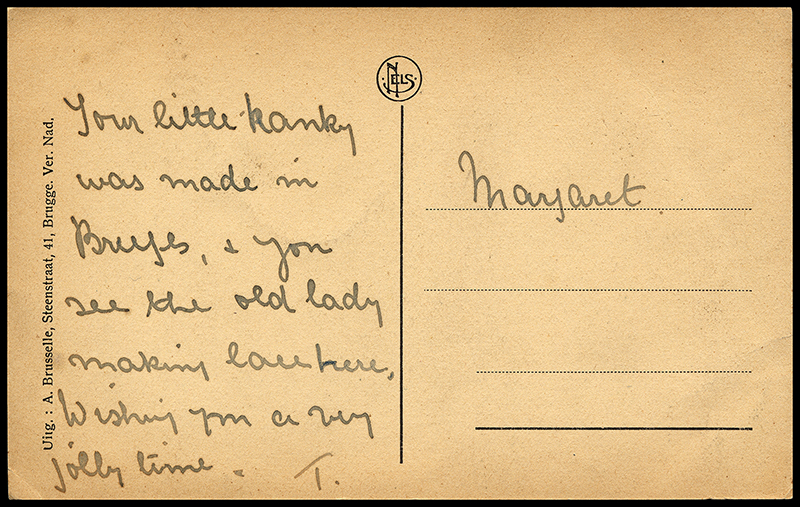 Your little hanky
was made in
Bruges, & you
see the old lady
making lace here,
Wishing you a very
jolly time. T.
NELS
Margaret
Uitg. : A. Brusselle, Steenstraat, 41, Brugge. Ver. Nad.